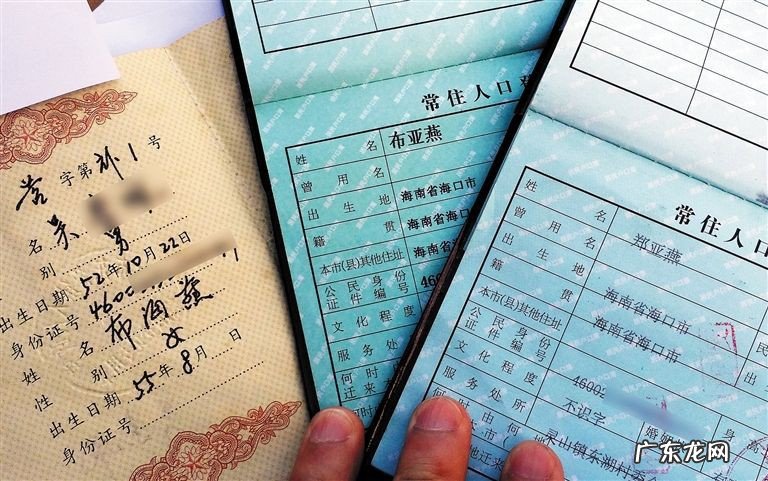 字第补1号
名 吴
别 男
出生日期 52年10月22日
身份证号 4600
姓 名 布
性 别 女
出生日期 55年8月 日
身份证号
常住人口
姓 名 布亚燕
曾 用 名
出 生 地 海南省海口市
籍 贯 海南省海口市
本市(县)其他住址 海南省海口市
公民身份证件编号 4600
文化程度
服务处
何时
迁来本
何时
常住人口
姓 名 郑亚燕
曾 用 名
出 生 地 海南省海口市
籍 贯 海南省海口市
本市(县)其他住址
公民身份证件编号 46002
文化程度 不识字
婚姻
身高
服务处所
何时由何地迁来本市 灵山镇东湖村委会
广东龙网